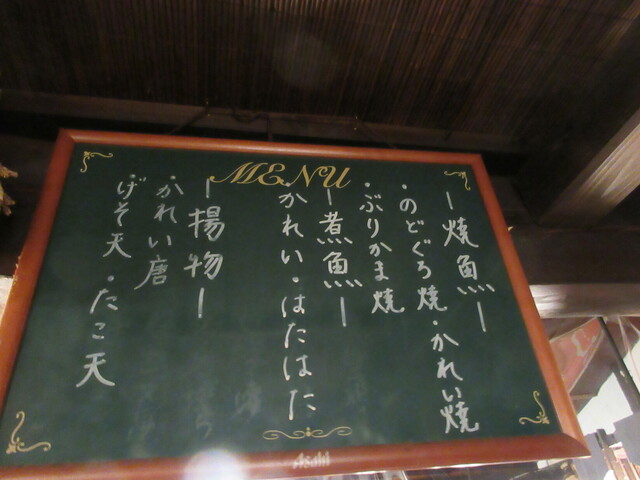 MENU
ー焼魚ー
・のどぐろ焼・かれい焼
・ぶりかま焼
ー煮魚ー
・かれい・はたはた
ー揚物ー
・かれい唐
・げそ天・たこ天
Asahi